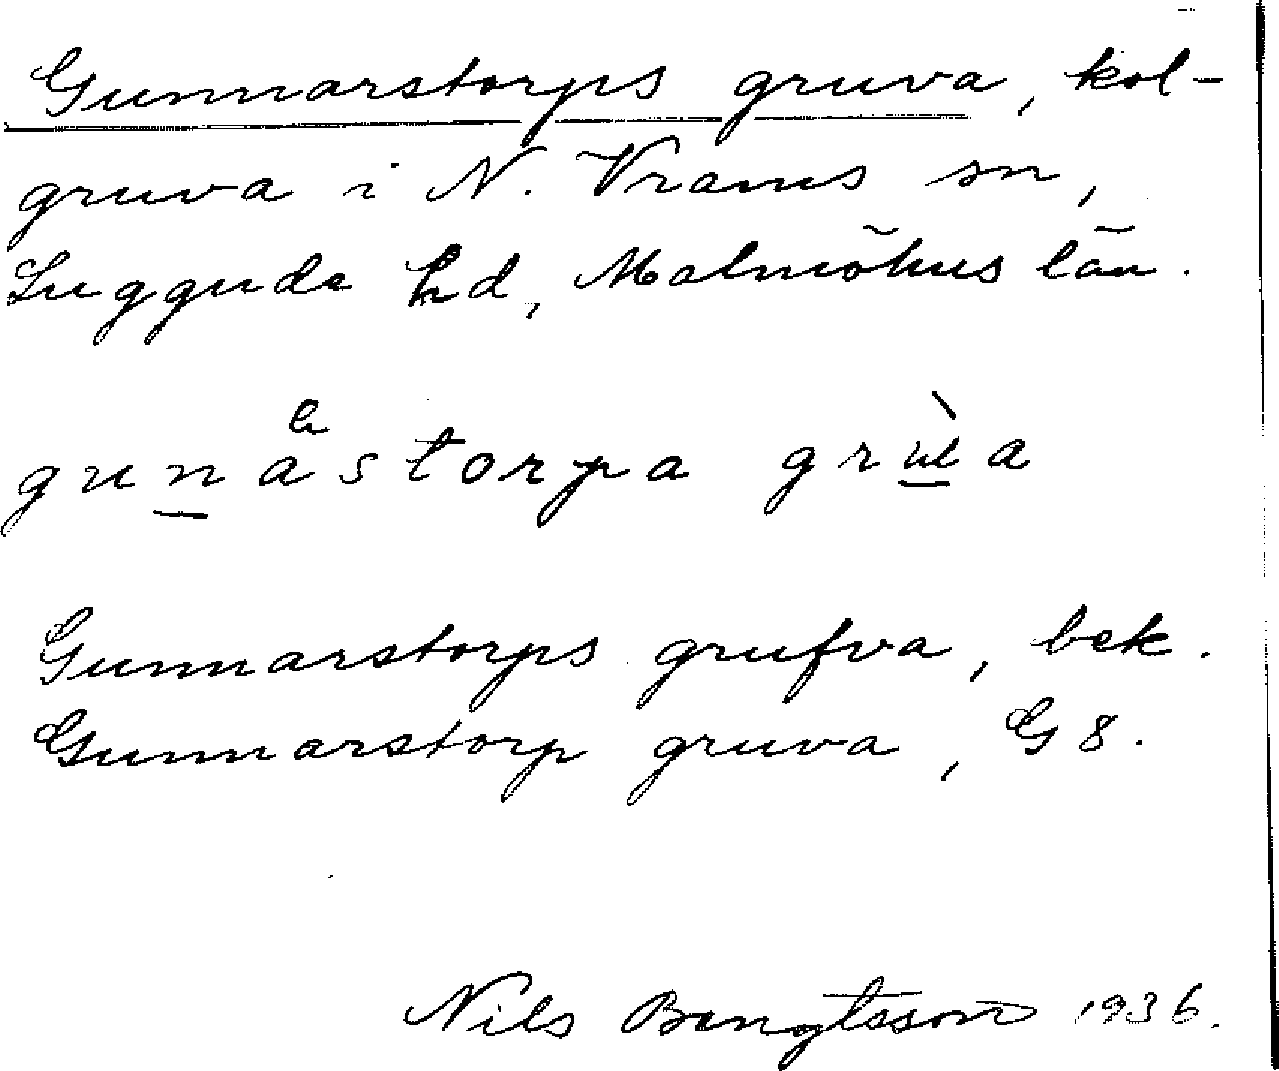 Gunnarstorps gruva, kol-
gruva i N. Vrams sn,
Luggude hd, Malmöhus län.
gunastorpa grua
Gunnarstorps grufva, bek.
Gunnarstorp gruva, G8.
Nils Bengtsson 1936.